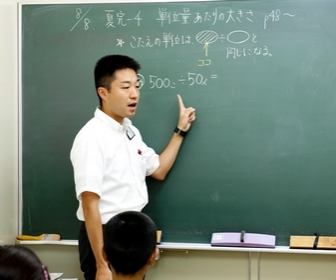 8/8 夏完-4 単位量あたりの大きさ p48〜
* こたえの単位は、÷と
ココ 同じになる。
500 ÷ 50 =